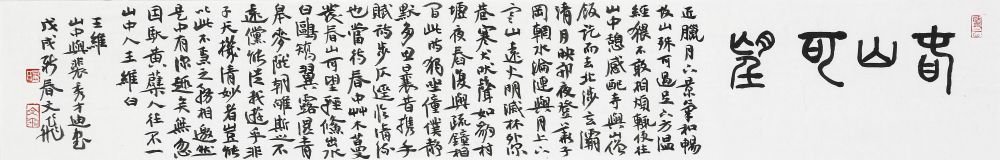 春山可望
近臘月下景氣和暢
故山殊可過足下方溫
經猥不敢相煩輒便往
山中憩感配寺與山僧
飯訖而去北涉玄灞
清月映郭夜登華子
岡輞水淪漣與月上下
寒山遠火明滅林外深
巷寒犬吠聲如豹村
墟夜舂復與疏鐘相
間此時獨坐僮僕靜
默多思曩昔攜手
賦詩步仄逕臨清流
也當待春中草木蔓
發春山可望輕鰷出水
白鷗矯翼露濕青
皋麥隴朝雊斯之不
遠儻能從我遊乎非
子天機清妙者豈能
以此不急之務相邀然
是中有深趣矣無忽
因馱黃蘗人往不一
山中人王維白
王維
山中與裴秀才迪書
戊戌新春文飛